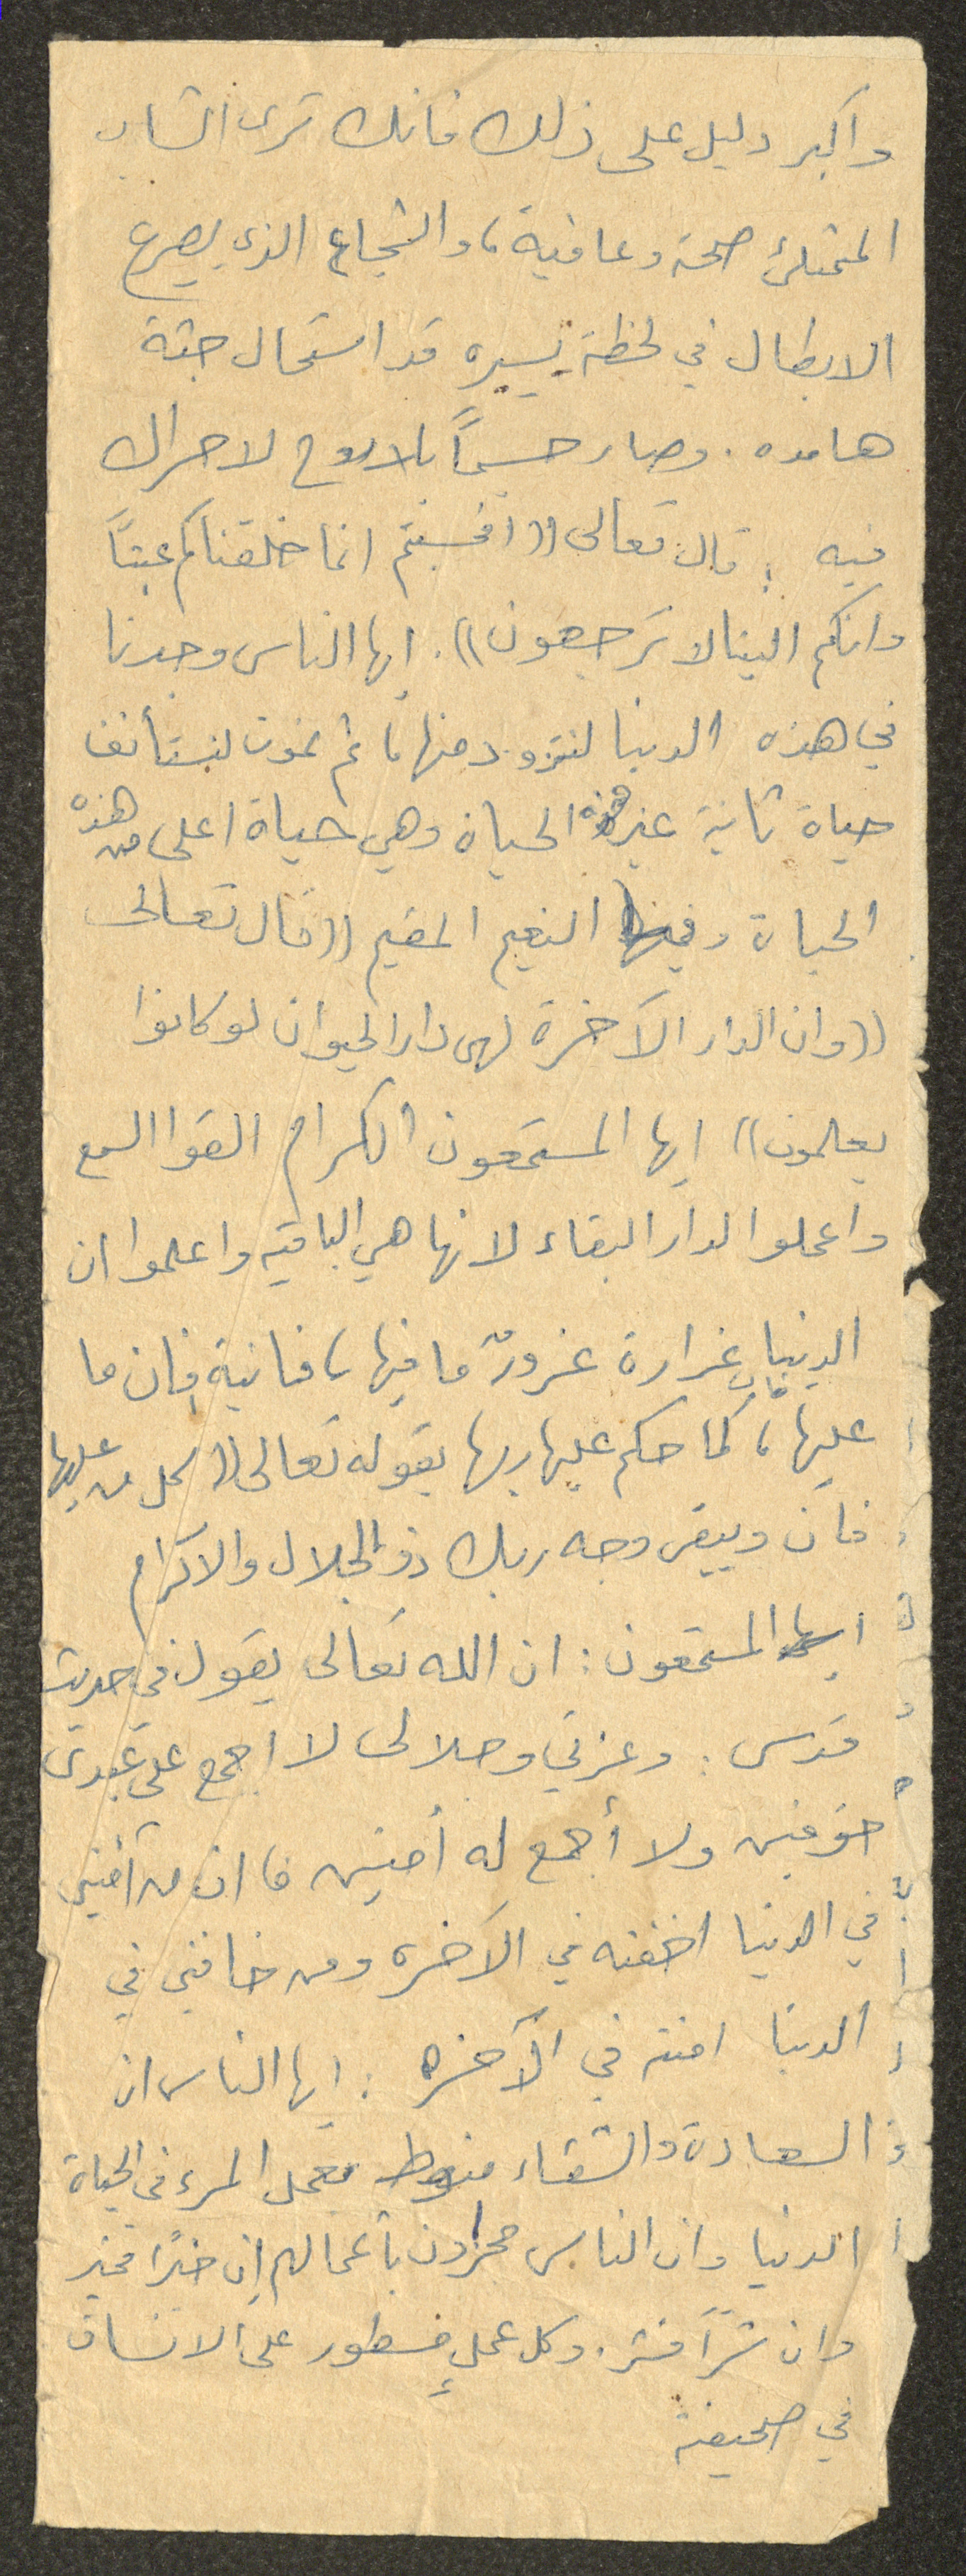 واكبر دليل على ذلك فانك ترى الشاب
الممتلئ صحة وعافية، والشجاع الذي يصرع
الابطال في لحظة يسيره قد استحال جثة
هامده. وصار جسماً بلا روح لا حراك
فيه : قال تعالى ((افحسبتم انما خلقناكم عبثاً
وانكم الينا لا ترجعون)). ايها الناس وجدنا
في هذه الدنيا لنتزود منها، ثم نموت لنستأنف
حياة ثانية غير هذه الحياة وهي حياة اعلى من هذه
الحياة وفيها النعيم المقيم ((قال تعالى
((وان الدار الآخرة لهى دار الحيوان لو كانوا
يعلمون)) ايها المستمعون الكرام القوا السمع
واعملوا لدار البقاء لانها هي الباقيه واعلموا ان
الدنيا غرارة غرورٌ ما فيها، فانية فان ما
عليها، كما حكم عليها ربها بقوله تعالى ((كل من عليها
فان ويبقى وجه ربك ذو الجلال والاكرام
ايها المستمعون : ان الله تعالى يقول في حديث
قدسى : وعزتي وجلالى لا اجمع على عبدى
خوفين ولا أجمع له أمنين فاان من آمنني
في الدنيا اخفته في الآخره ومن خافني في
الدنيا امنته في الآخره : ايها الناس ان
السعادة والشقاء منوط بعمل المرء في الحياة
الدنيا وان الناس مجزاون بأعمالهم إن خيرًا فخير
وان شراً فشر. وكل عملٍ مسطور على الانسان
في صحيفة